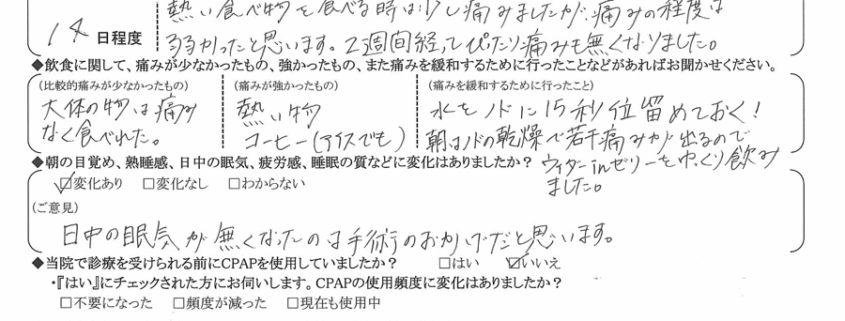 熱い食べ物を食べる時は少し痛みましたが、痛みの程度は
14 日程度
弱かったと思います。2週間経ってぴたり痛みも無くなりました。
◆飲食に関して、痛みが少なかったもの、強かったもの、また痛みを緩和するために行ったことなどがあればお聞かせください。
(比較的痛みが少なかったもの)
大体の物は痛み
なく食べれた。
(痛みが強かったもの)
熱い物
コーヒー(アイスでも)
(痛みを緩和するために行ったこと)
水をノドに15秒位留めておく!
朝はノドの乾燥で若干痛みが出るので
ウイダーinゼリーをゆっくり飲み
ました。
◆朝の目覚め、熟睡感、日中の眠気、疲労感、睡眠の質などに変化はありましたか?
☑変化あり □変化なし □わからない
(ご意見)
日中の眠気が無くなったのは手術のおかげだと思います。
◆当院で診療を受けられる前にCPAPを使用していましたか? □はい ☑いいえ
・『はい』にチェックされた方にお伺いします。CPAPの使用頻度に変化はありましたか?
□不要になった □頻度が減った □現在も使用中